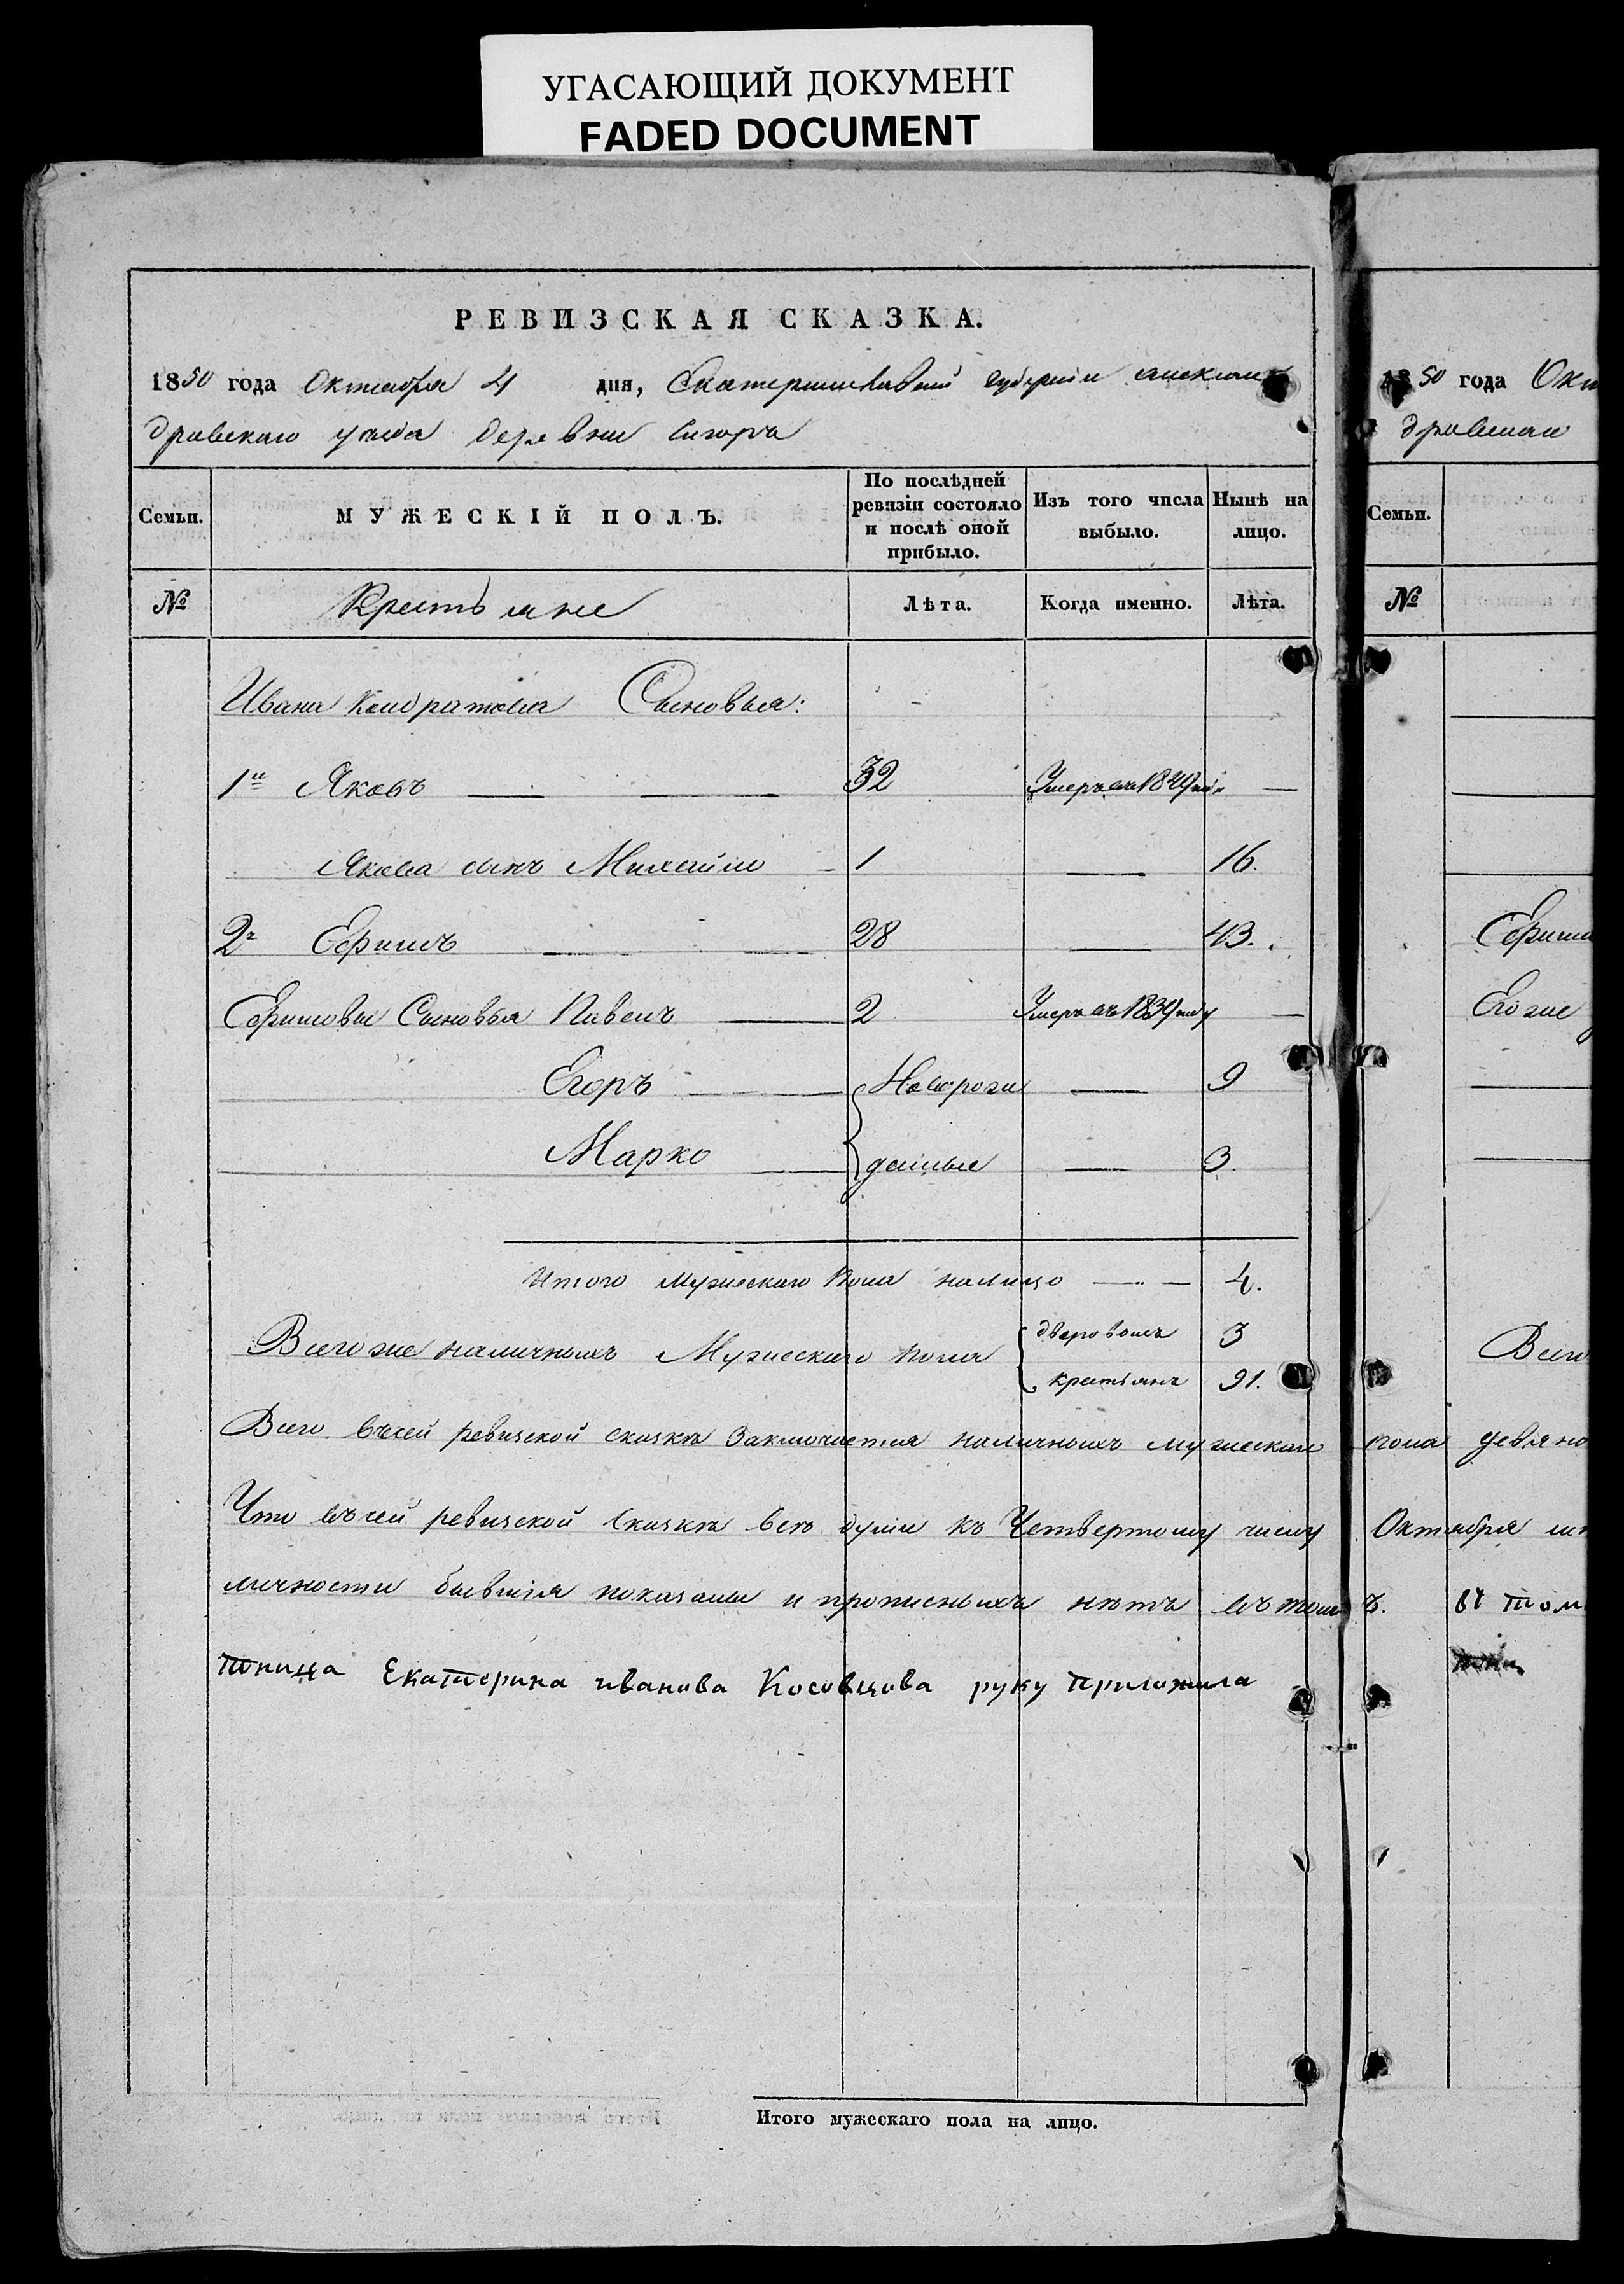 УГАСАЮЩИЙ ДОКУМЕНТ
FADED DOCUMENT
РЕВИЗСКАЯ СКАЗКА.
1850 года Октября 4 дня, Екатеринославской губернии алексан
дровскаго уезда деревни
Семьи. МУЖЕСКІЙ ПОЛЪ. По послѣдней ревизіи состояло и послѣ оной прибыло. Изъ того числа выбыло. Нынѣ на лицо.
№ Крестьяне Лѣта. Когда именно. Лѣта.
Ивана Кондратова Сыновья:
1й Яковъ 32 Умеръ въ 1849
Якова сынъ Михайло 1 16.
2й Ефимъ 28 43.
Ефимовы Сыновья Павелъ 2 Умеръ въ 1839 году
Егоръ Новорож 9
Марко денные 3.
Итого мужескаго пола налицо 4.
Всего же наличныхъ Мужескаго пола дворовыхъ 3
крестьянъ 91.
Всего въ сей ревизской сказкѣ Заключается наличныхъ мужескаго пола девяно
Что въ сей ревизской сказкѣ все души къ Четвертому числу Октября
личности бывшія показаны и прописныхъ нѣтъ въ томъ.
тница Екатерина иванова Косовцова руку приложила
Итого мужескаго пола на лицо.
1850 года Окт
дровскаго
Семьи.
№
Ефим
Его же
Всего
въ том